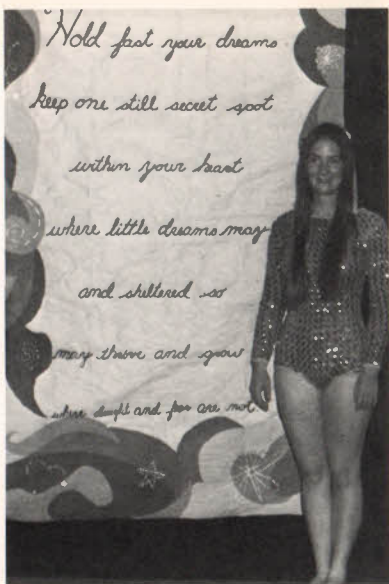 Hold fast your dreams
keep one still secret spot
within your heart
where little dreams may
and sheltered so
may thrive and grow
where doubt and fear are not.